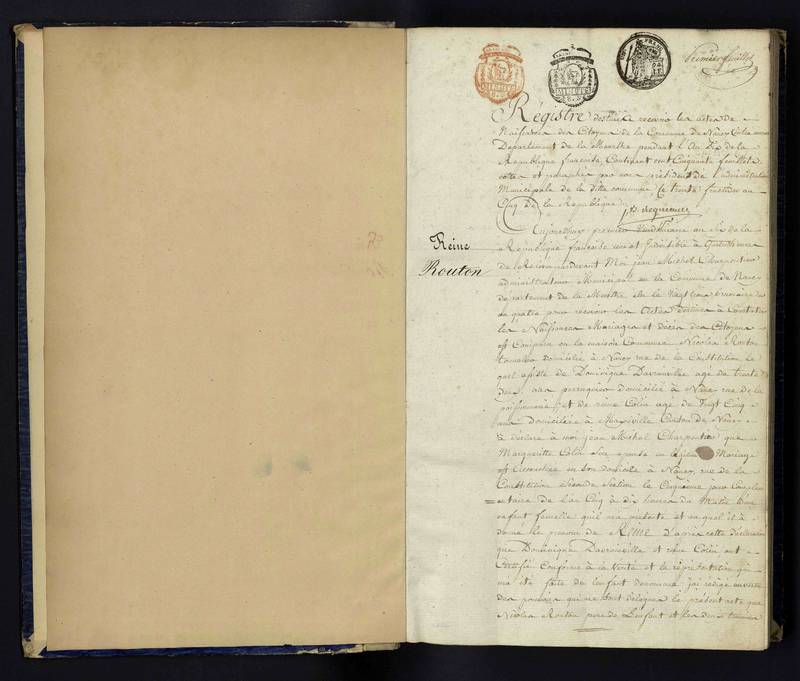 Premier feuillet
Régistre destiné à recevoir les actes de
Naissances des Citoyens de la Commune de Nancy
Département de la Meurthe pendant l'An Six de la
République française, Contenant cent Cinquante feuillets
cottés et paraphés par nous président de l'administration
Municipale de la ditte commune le trente fructidor an
Cinq De la République
Cejourd'huy premier Vendémiaire an six de la
République française une et Indivisible à
de Relevée pardevant Moi jean Michel Charpentier
administrateur Municipal en la Commune de Nancy
département de la Meurthe élu le Vingt trois brumaire
an quatre pour recevoir les Actes destinés à Constater
les Naissances Mariages et décès des Citoyens
est Comparu en la maison Commune Nicolas Routon
domicilié à Nancy rue de la Constitution le
quel assisté de Dominique Davrainville agé de trente
deux ans perruquier domicilié à Nancy rue de la
poissonnerie, et de reine Colin agé de Vingt Cinq
ans domiciliée à Maxéville Canton de Nancy
à déclaré à moi jean Michel Charpentier que
Margueritte Colin Son épouse en Mariage
est accouchée en son domicile à Nancy, rue de la
Constitution Seconde Section le Cinquième jour Complem
entaire de l'an Cinq à dix heures du Matin d'un
enfant femelle qu'il m'a présenté et auquel il à
donné le prenom de Reine D'après cette déclaration
que Dominique Davrainville et reine Colin ont
Certifié Conforme à la Verité et la représentation qui
m'a été faite de l'enfant denommé j'ai rédigé en vertu
des pouvoirs qui me sont délégués le présent acte que
Nicolas Routon pere de L'enfant et les deux temoins
Reine
Routon